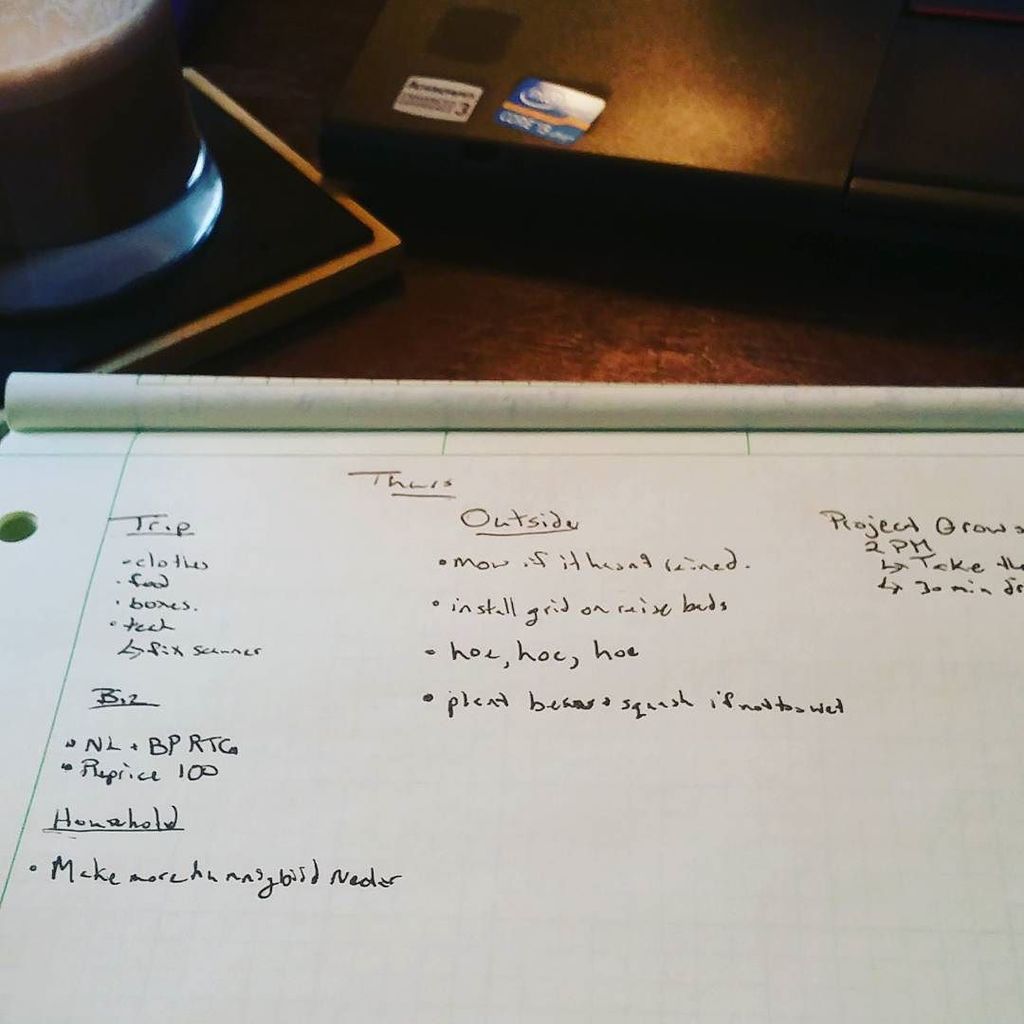 CORE i3
3
Thurs
Trip
• clothes
• food
• boxes.
• tech
↳ fix scanner
Biz
• NL + BP RTG
• Reprice 100
Household
• Make more hummingbird Nectar
Outside
• mow if it hasnt rained.
• install grid on raise beds
• hoe, hoe, hoe
• plant beans + squash if not too wet
Project Grows
2 PM
↳ Take the
↳ 30 min dr